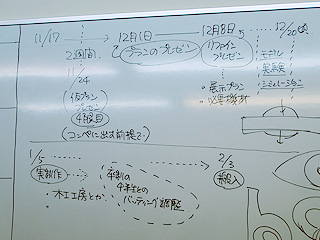 11/17
12月1日
12月8日
12/20頃
2週間
24
プランのプレゼン
リファイン
プレゼン
仮プラン
プレゼン
4役目
(コンペに出す前提で)
・展示プラン
モデル
実験
シミュレーション
1/5
2/3
実制作
・木工工房とか
卒制の
4年生との
バッティング調整
搬入